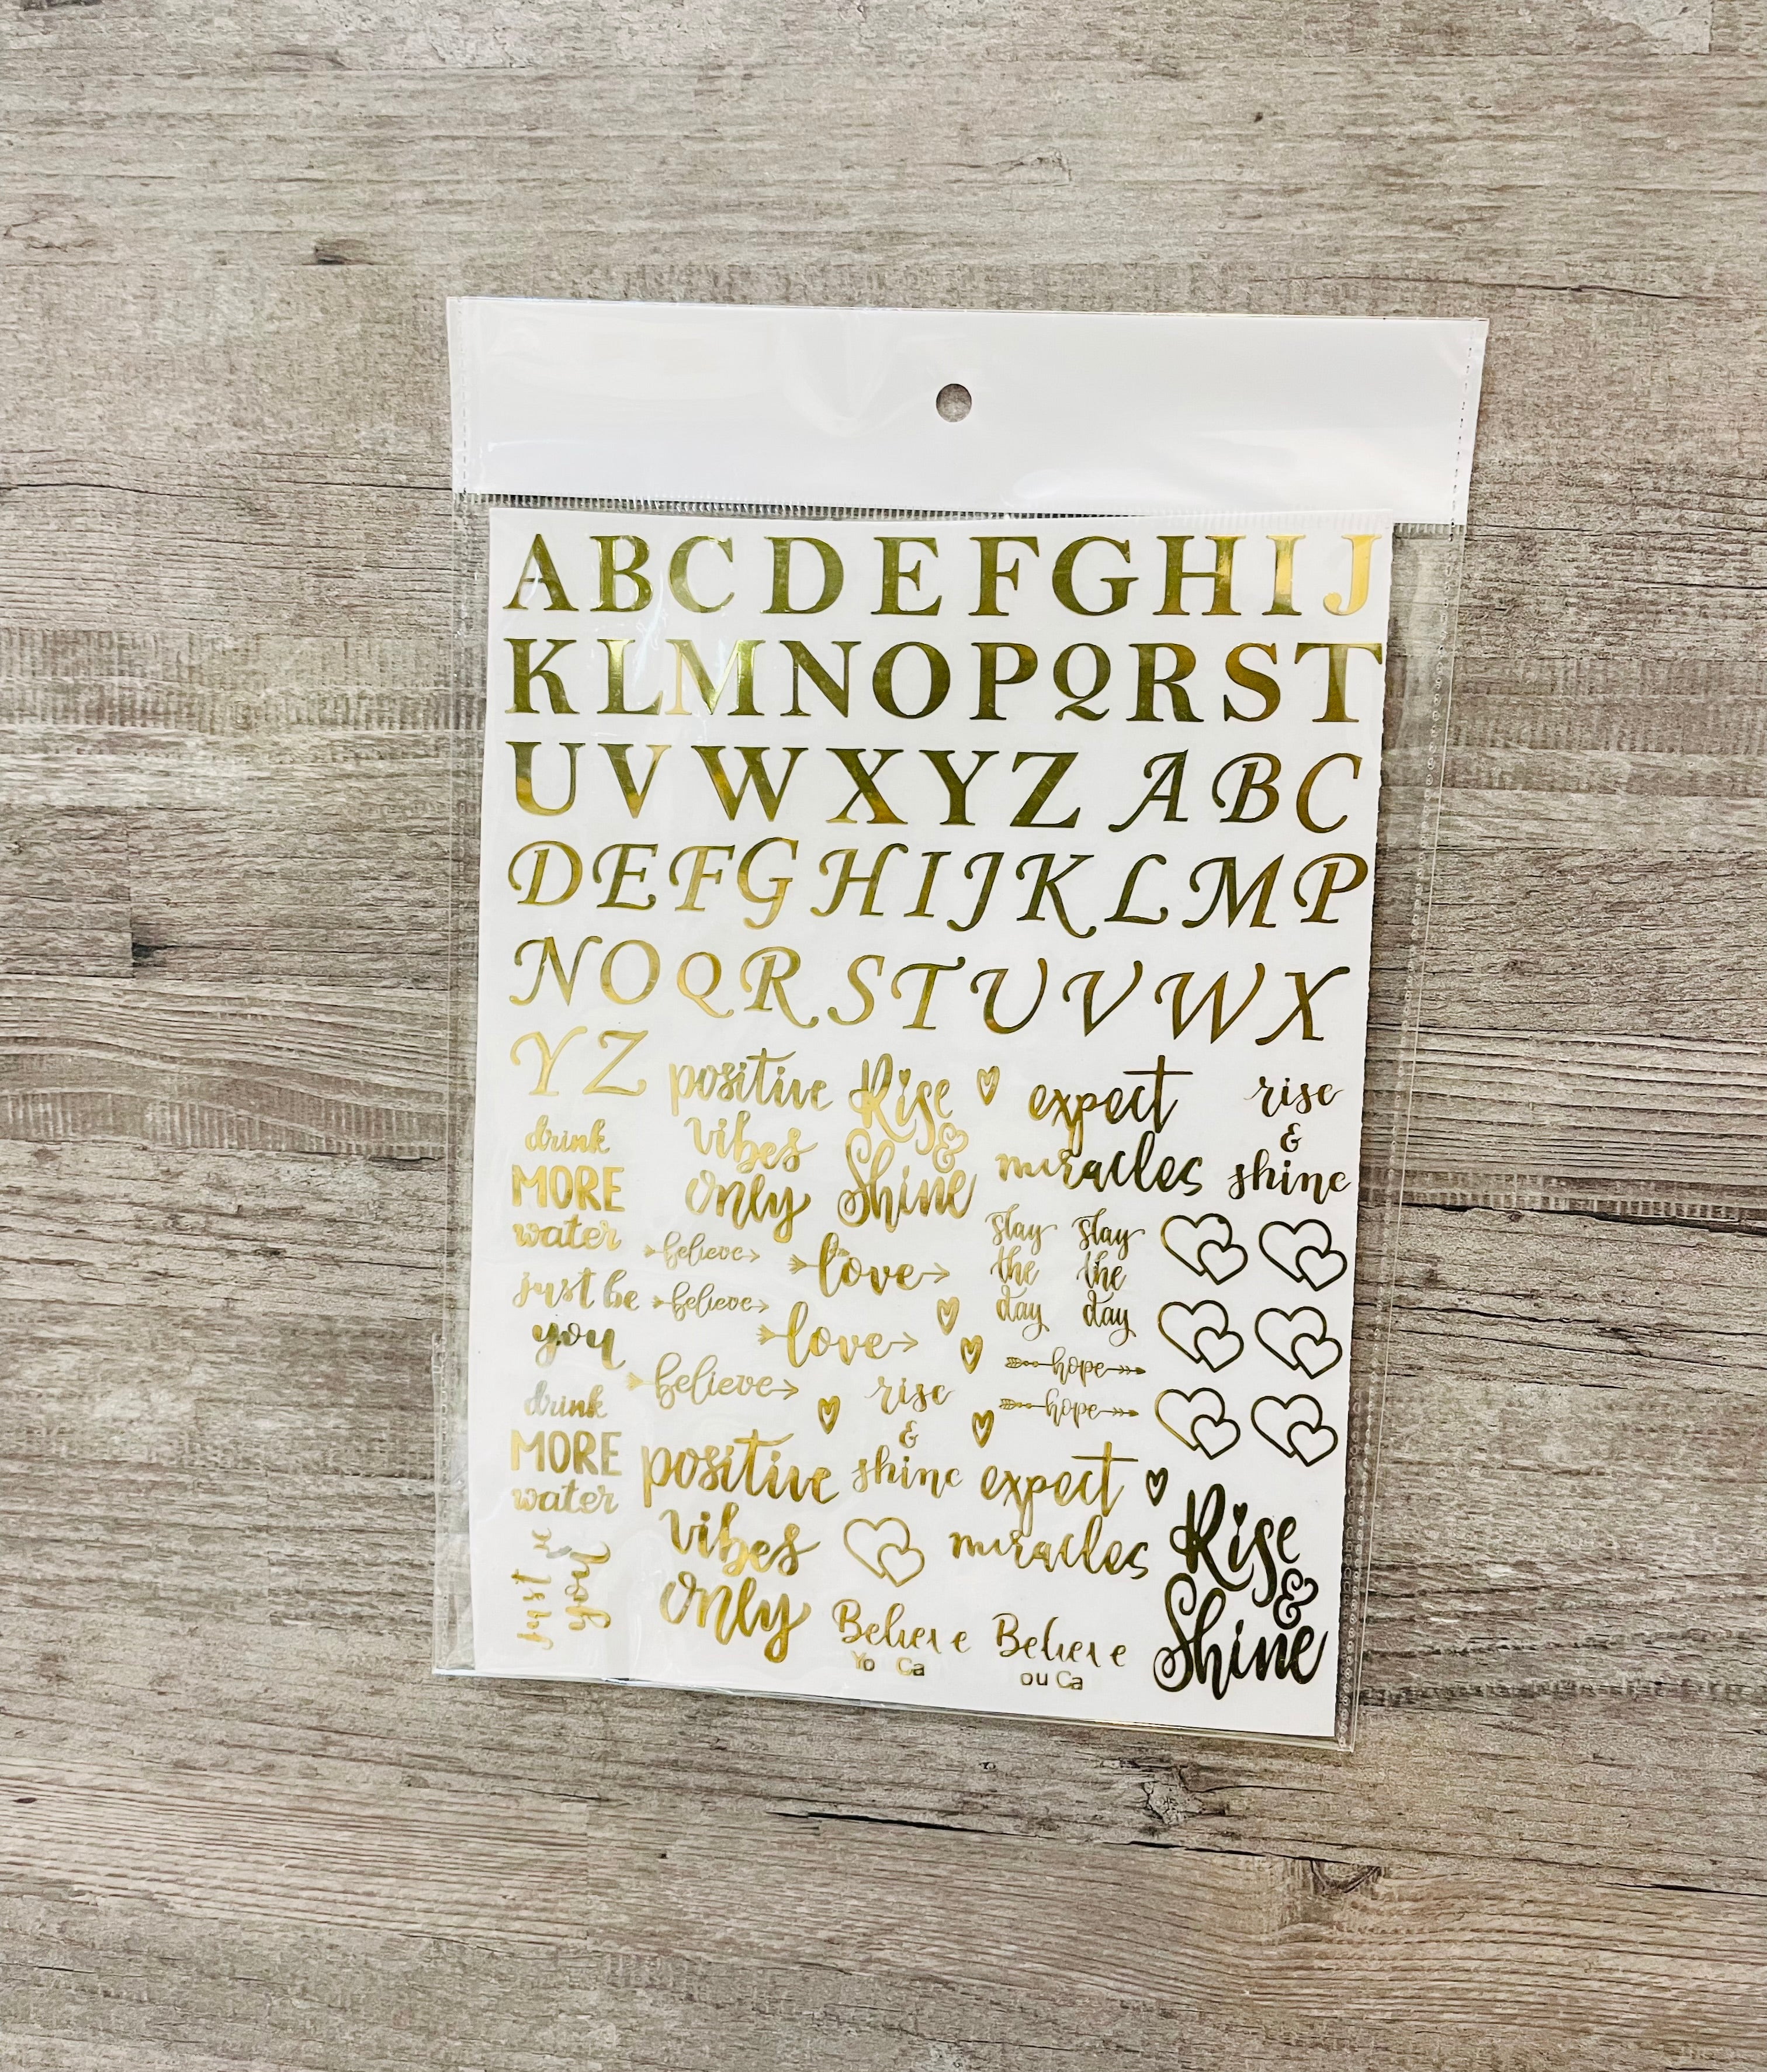 A B C D E F G H I J
K L M N O P Q R S T
U V W X Y Z A B C
D E F G H I J K L M P
N O Q R S T U V W X
Y Z
positive
vibes
only
Rise
&
Shine
expect
miracles
rise
&
shine
drink
MORE
water
believe
love
slay
the
day
slay
the
day
just be
you
believe
love
believe
hope
hope
drink
MORE
water
rise
&
shine
positive
vibes
only
expect
miracles
Rise
&
Shine
just
you
Believe
Yo Ca
Believe
ou Ca